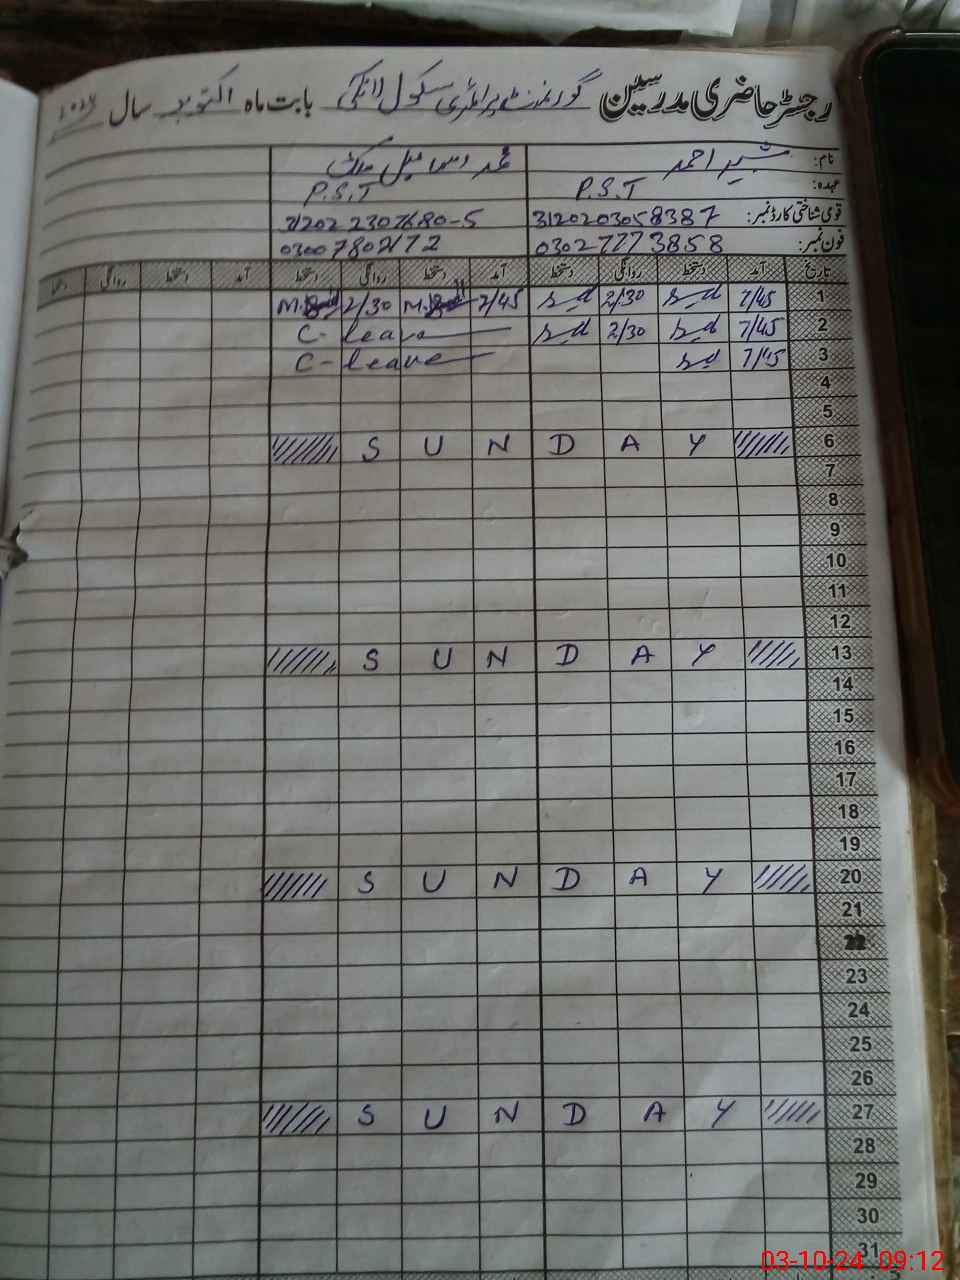 رجسٹر حاضری مدرسین گورنمنٹ پرائمری سکول لانگی بابت ماہ اکتوبر سال 2024
نام: شبیر احمد محمد اسماعیل ملک
عہدہ: P.S.T P.S.T
قومی شناختی کارڈ نمبر: 3120203058387 31202 2307680-5
فون نمبر: 03027773858
تاریخ آمد دستخط روانگی دستخط آمد دستخط روانگی دستخط آمد دستخط روانگی دستخط
1 7/45 2/30 7/45 2/30
2 7/45 2/30 C-leave
3 7/45 C-leave
4
5
6 SUNDAY
7
8
9
10
11
12
13 SUNDAY
14
15
16
17
18
19
20 SUNDAY
21
22
23
24
25
26
27 SUNDAY
28
29
30
31
03-10-24 09:12